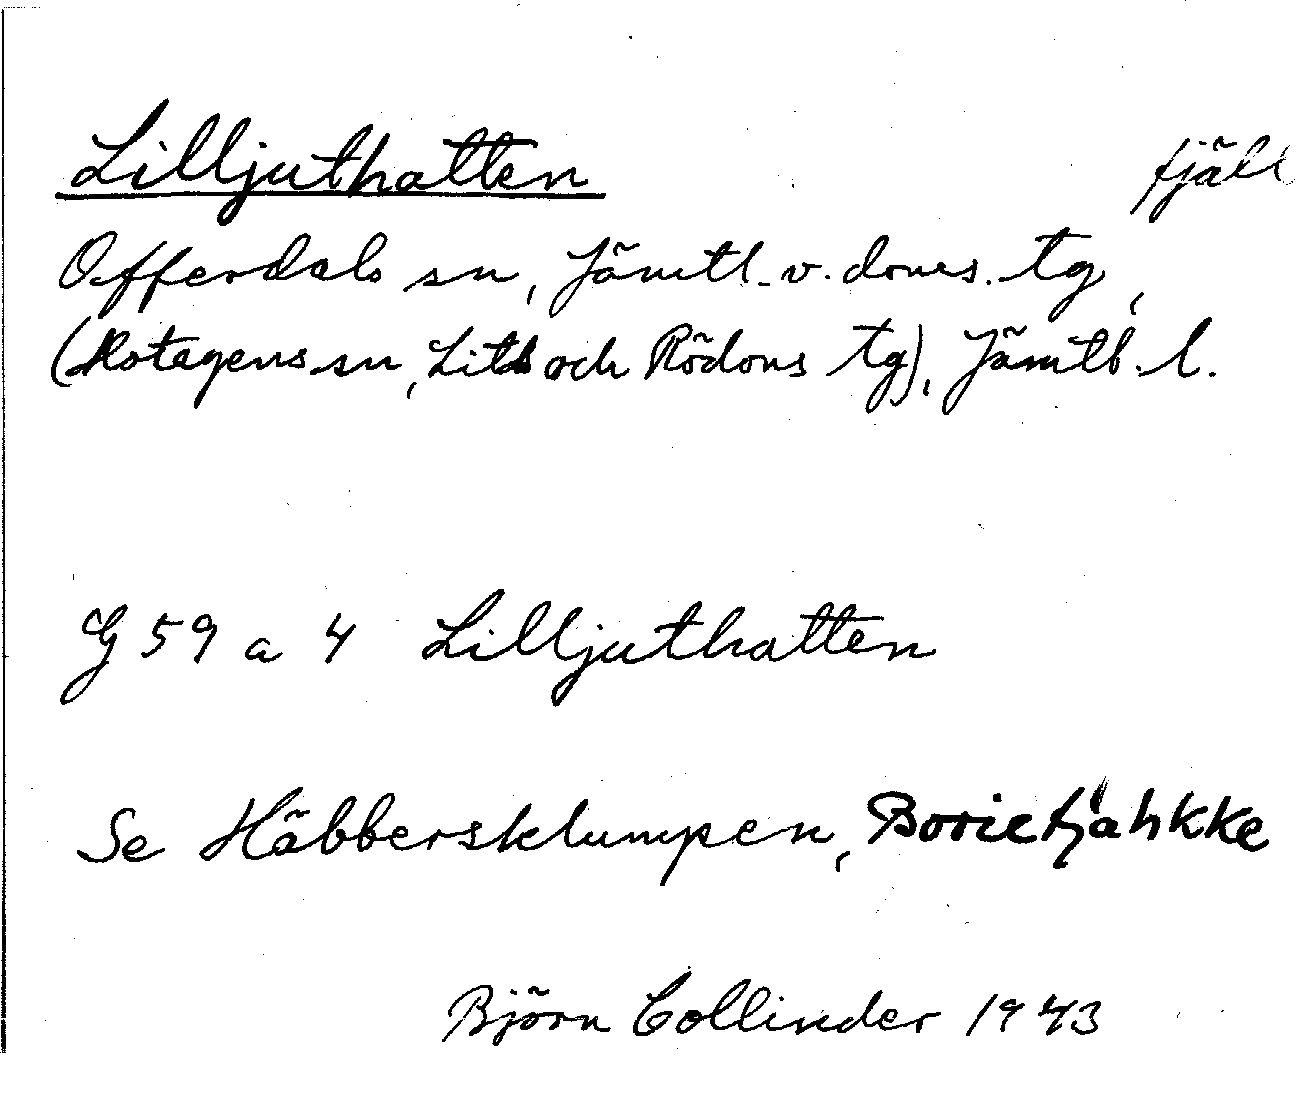 Lilljuthatten fjäll
Offerdals sn, Jämtl. v. doms. tg,
(Hotagens sn, Lits och Rödöns tg), Jämtl. l.
G 59 a 4 Lilljuthatten
Se Häbbersklumpen, Borietjåhkke
Björn Collinder 1943